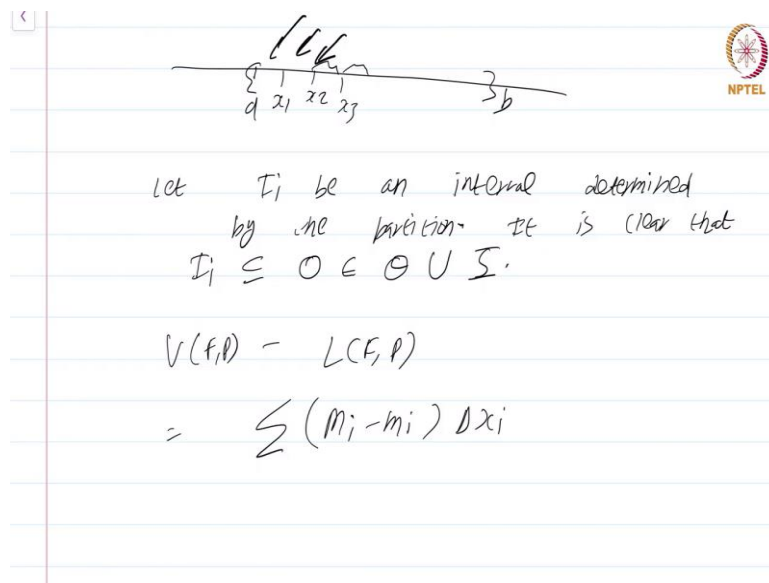 NPTEL
a x1 x2 x3 b
Let Ii be an interval determined
by the partition. It is clear that
Ii ⊆ O ∈ Θ ∪ I.
U(F,P) - L(F,P)
= ∑ (Mi - mi) Δxi